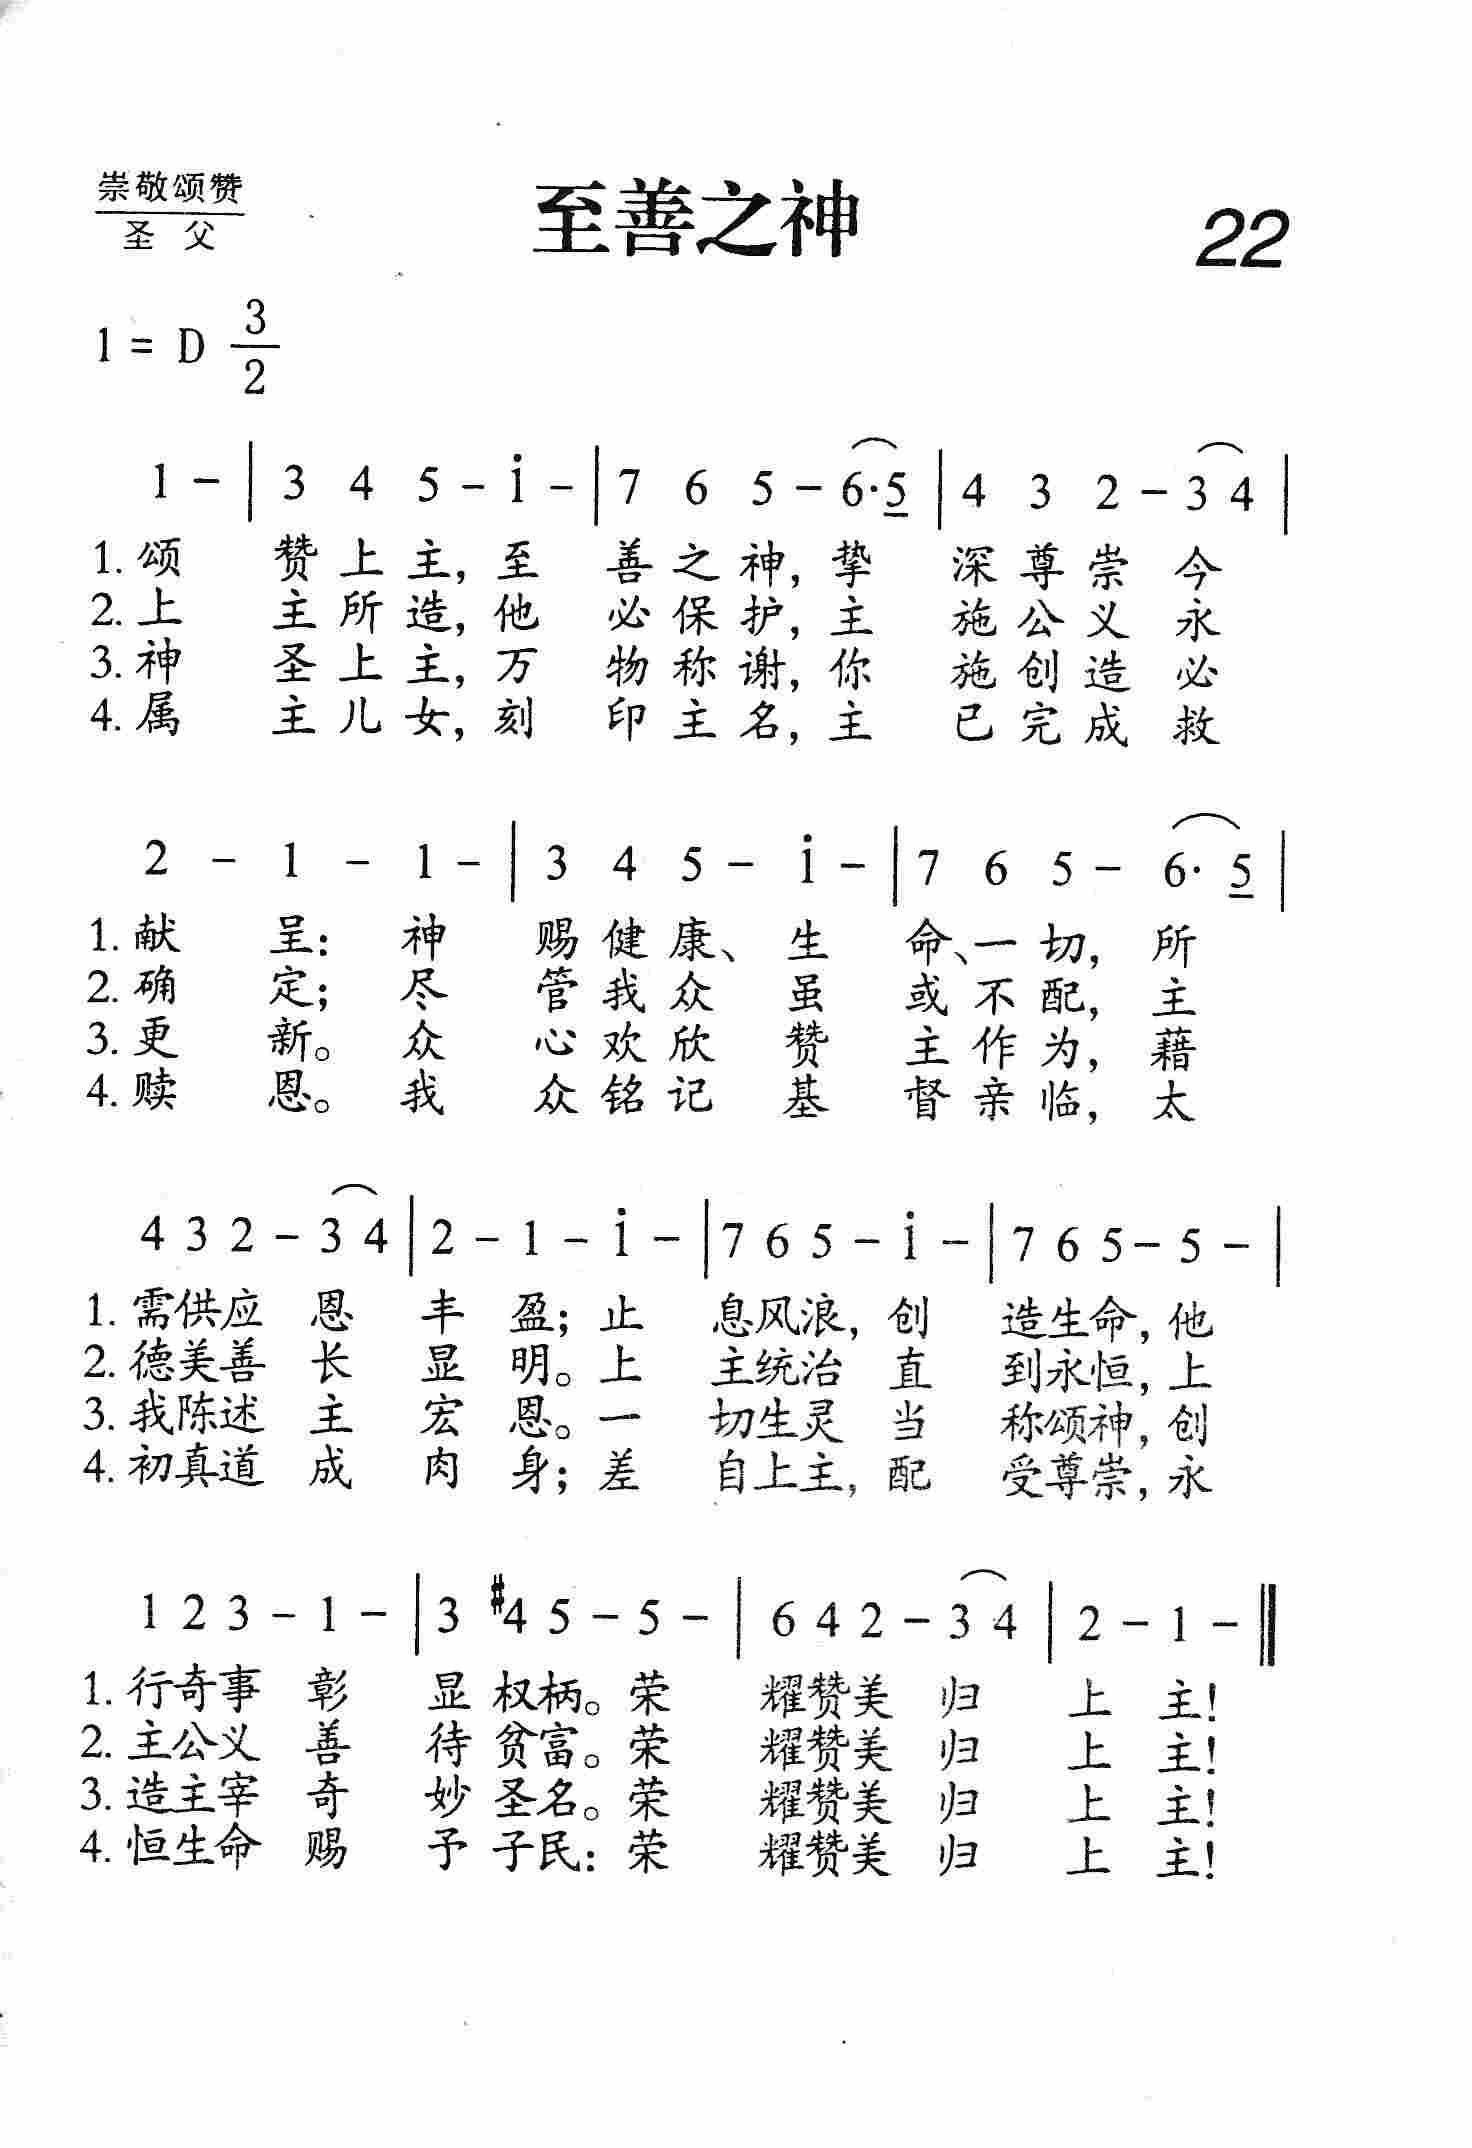 崇敬颂赞
圣 父
至善之神
22
1 = D 3/2
1 - | 3 4 5 - i - | 7 6 5 - 6·5 | 4 3 2 - 3 4 |
1. 颂 赞 上 主, 至 善 之 神, 挚 深 尊 崇 今
2. 上 主 所 造, 他 必 保 护, 主 施 公 义 永
3. 神 圣 上 主, 万 物 称 谢, 你 施 创 造 必
4. 属 主 儿 女, 刻 印 主 名, 主 已 完 成 救
2 - 1 - 1 - | 3 4 5 - i - | 7 6 5 - 6· 5 |
1. 献 呈: 神 赐 健 康、 生 命、一 切, 所
2. 确 定; 尽 管 我 众 虽 或 不 配, 主
3. 更 新。 众 心 欢 欣 赞 主 作 为, 藉
4. 赎 恩。 我 众 铭 记 基 督 亲 临, 太
4 3 2 - 3 4 | 2 - 1 - i - | 7 6 5 - i - | 7 6 5 - 5 - |
1. 需供应 恩 丰 盈; 止 息风浪, 创 造生命, 他
2. 德美善 长 显 明。上 主统治 直 到永恒, 上
3. 我陈述 主 宏 恩。一 切生灵 当 称颂神, 创
4. 初真道 成 肉 身; 差 自上主, 配 受尊崇, 永
1 2 3 - 1 - | 3 #4 5 - 5 - | 6 4 2 - 3 4 | 2 - 1 - ‖
1. 行奇事 彰 显 权柄。荣 耀赞美 归 上 主!
2. 主公义 善 待 贫富。荣 耀赞美 归 上 主!
3. 造主宰 奇 妙 圣名。荣 耀赞美 归 上 主!
4. 恒生命 赐 予 子民: 荣 耀赞美 归 上 主!